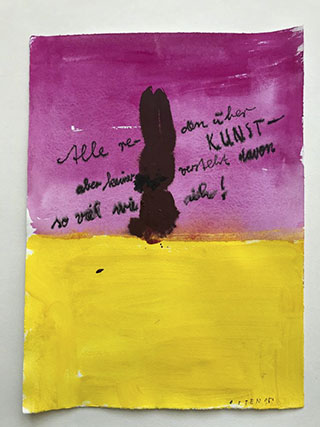 Alle re- den über
KUNST-
aber keiner versteht davon
so viel wie ich!